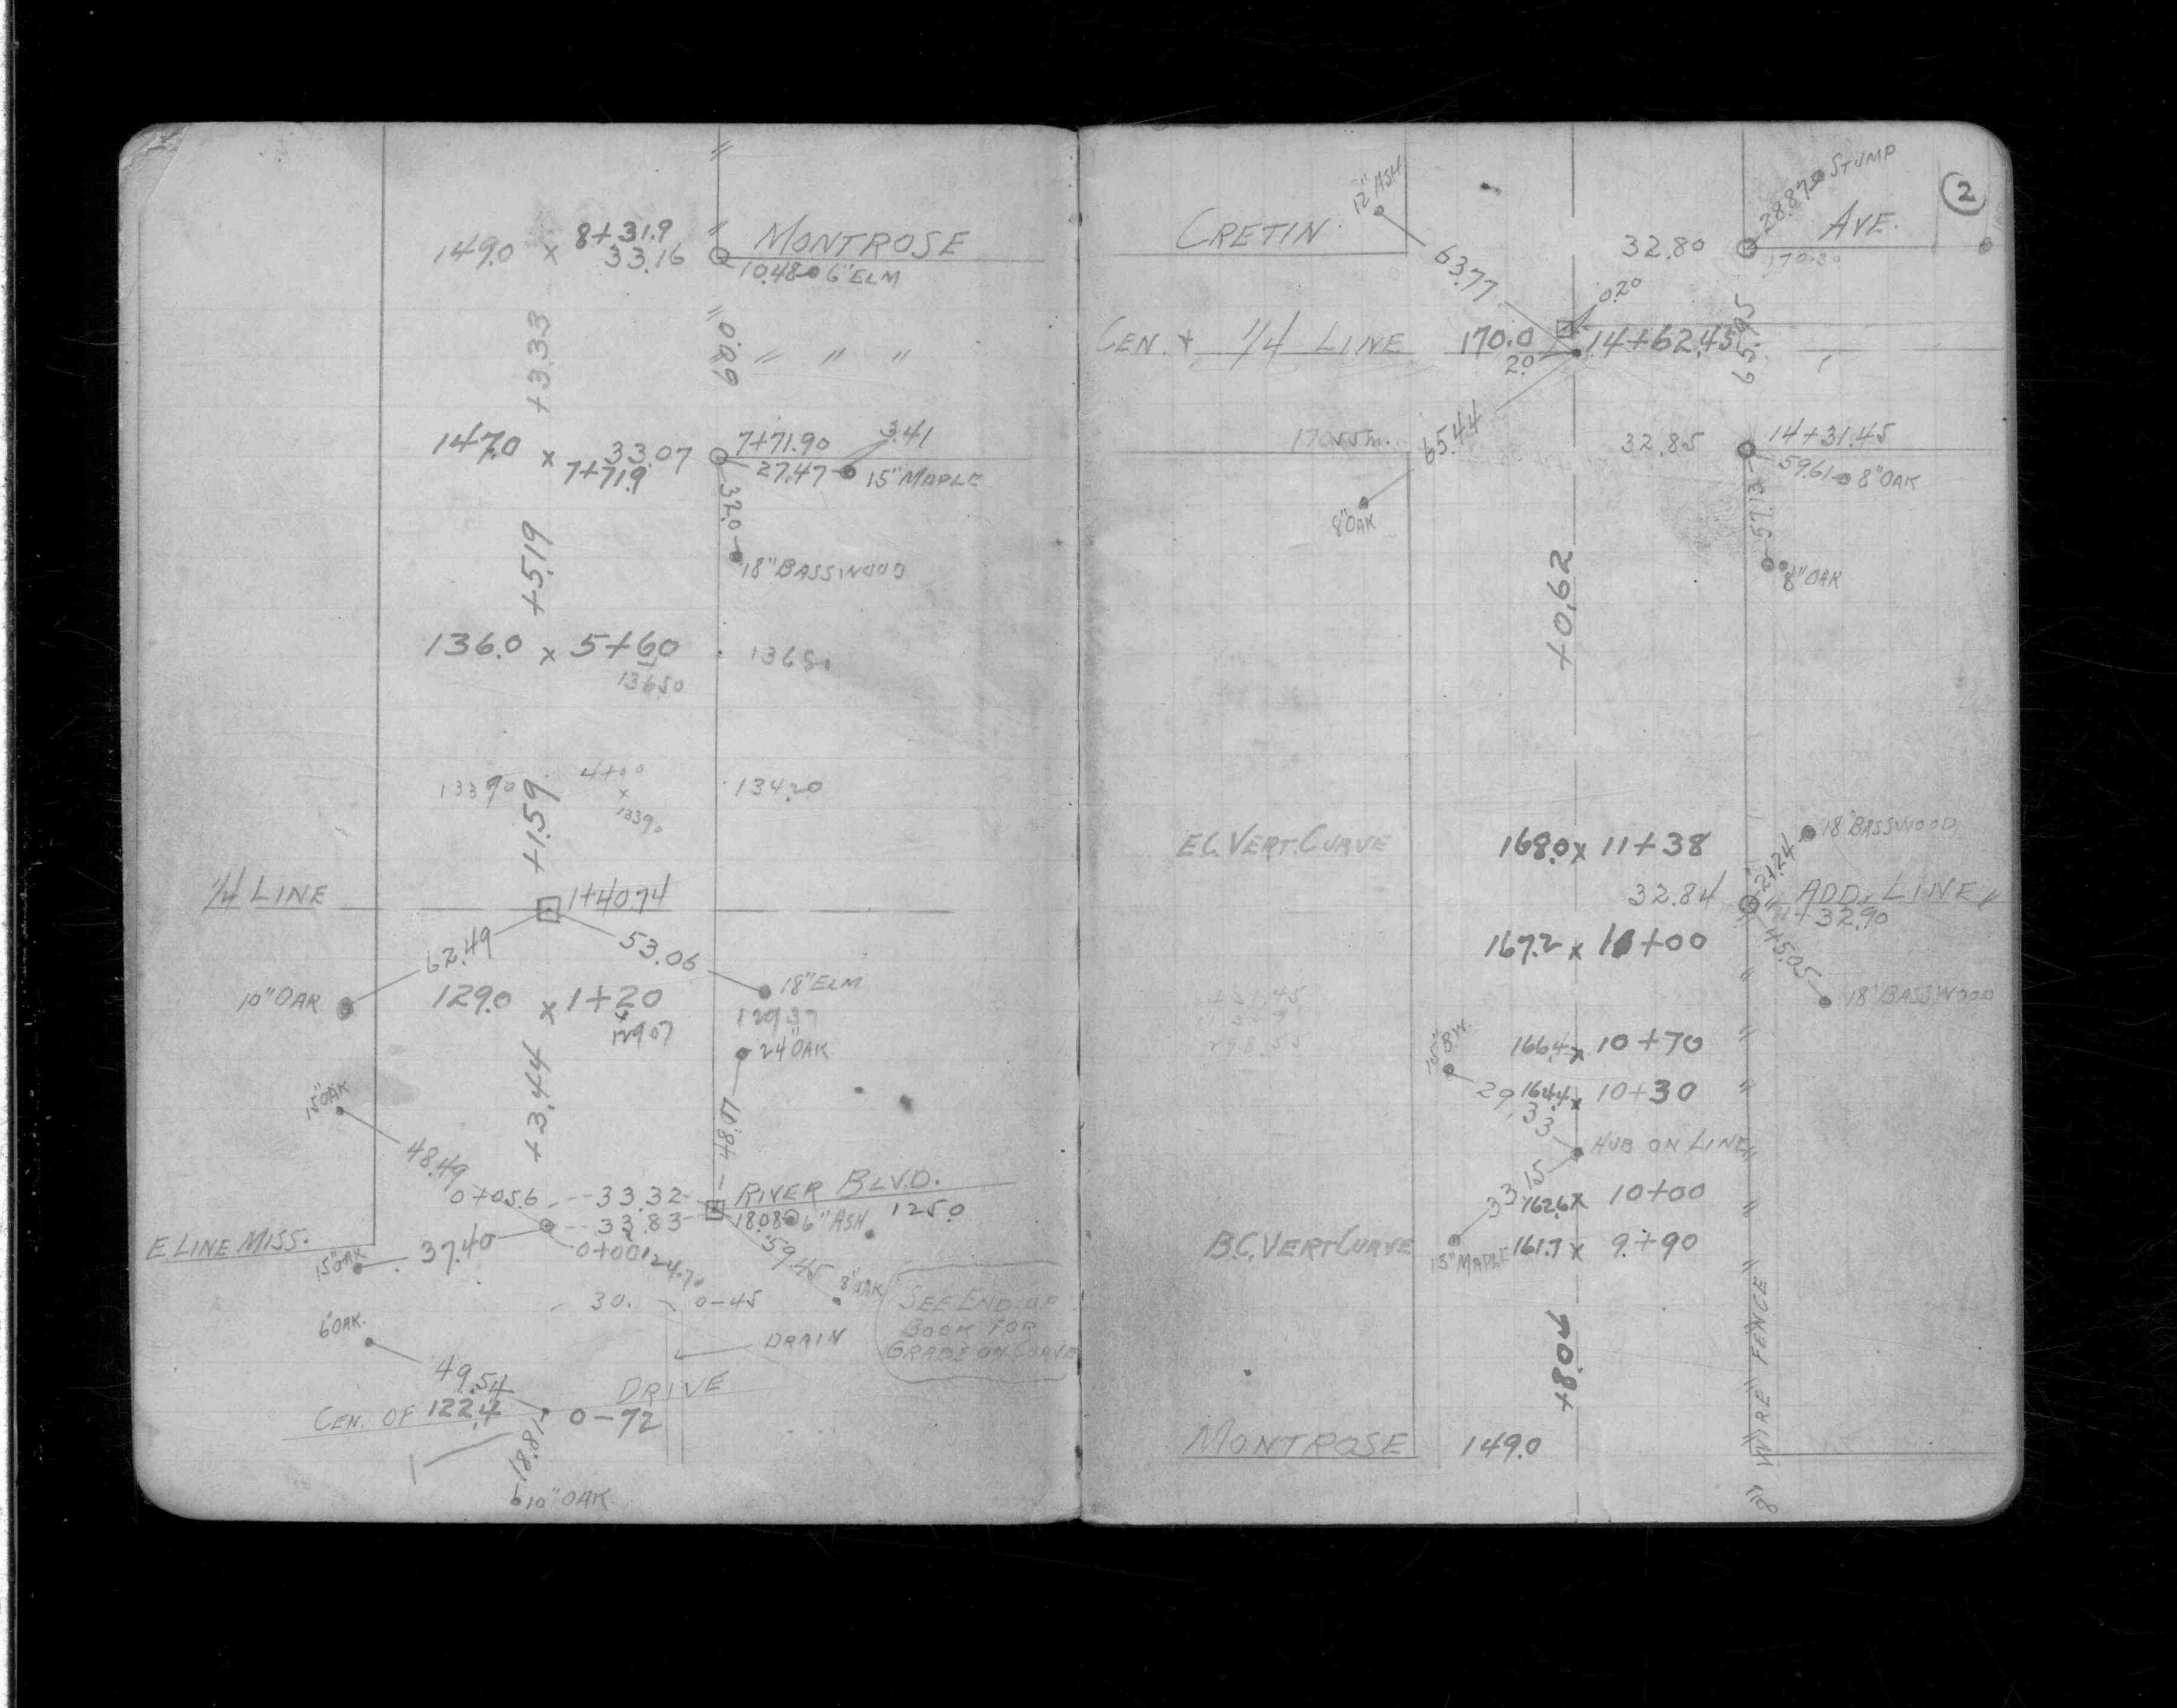 149.0 x 8+31.9
33.16
MONTROSE
10.48 6" ELM
+3.33
60.0
" " "
147.0 x 33.07
7+71.9
7+71.90
3.41
27.47 15" MAPLE
32.0
18" BASSWOOD
+5.19
136.0 x 5+60
136.50
136.50
133.90
4+00
x
133.90
134.20
+1.59
1/4 LINE
1+40.74
62.49
53.06
10" OAK
18" ELM
129.0 x 1+20
129.07
129.37
24" OAK
+3.44
48.17
15" OAK
48.49
0+05.6 33.32
RIVER BLVD.
125.0
33.83
18.08 6" ASH
E LINE MISS.
15" OAK
37.40
0+00
124.70
59.45
8" OAK
30.
0-45
SEE END OF
BOOK FOR
GRADE ON CURVE
DRAIN
6" OAK.
49.54
DRIVE
CEN. OF 122.4
0-72
18.81
10" OAK
2
12" ASH
28.87 STUMP
CRETIN
AVE.
32.80
170.30
63.77
0.20
CEN. + 1/4 LINE 170.0 14+62.45
20
65.95
65.44
32.85
14+31.45
59.61 8" OAK
57.13
8" OAK
8" OAK
+0.62
E.C. VERT. CURVE
168.0 x 11+38
18" BASSWOOD
21.24
32.84
ADD. LINE
+32.90
167.2 x 11+00
45.05
18" BASSWOOD
166.4 x 10+70
B.W.
29.33
164.4 x 10+30
HUB ON LINE
33.15
162.6 x 10+00
B.C. VERT CURVE
15" MAPLE
161.7 x 9+90
+8.04
8" WIRE FENCE
MONTROSE
149.0